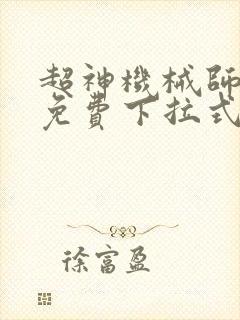 超神機械師
免費下拉式
徐富盈